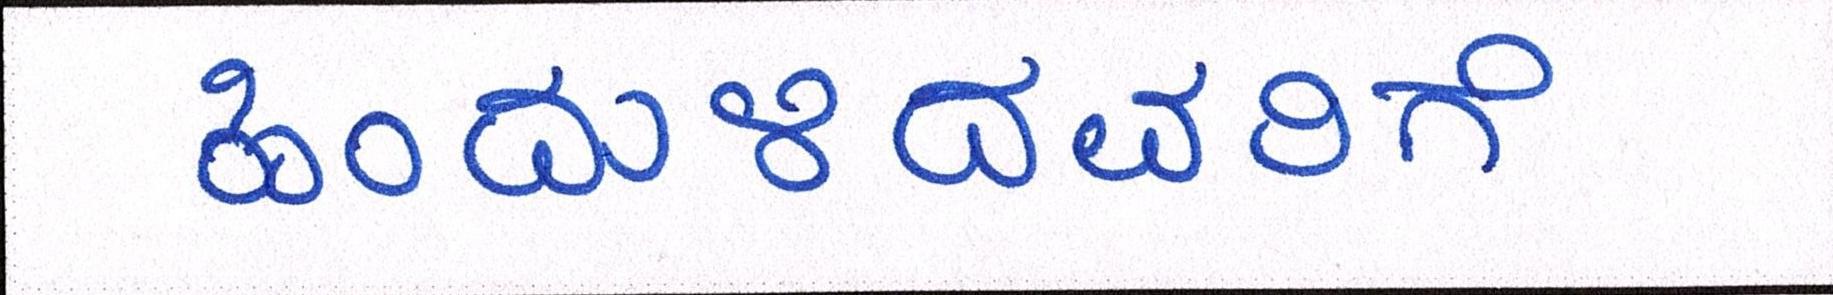 ಹಿಂದುಳಿದವರಿಗೆ